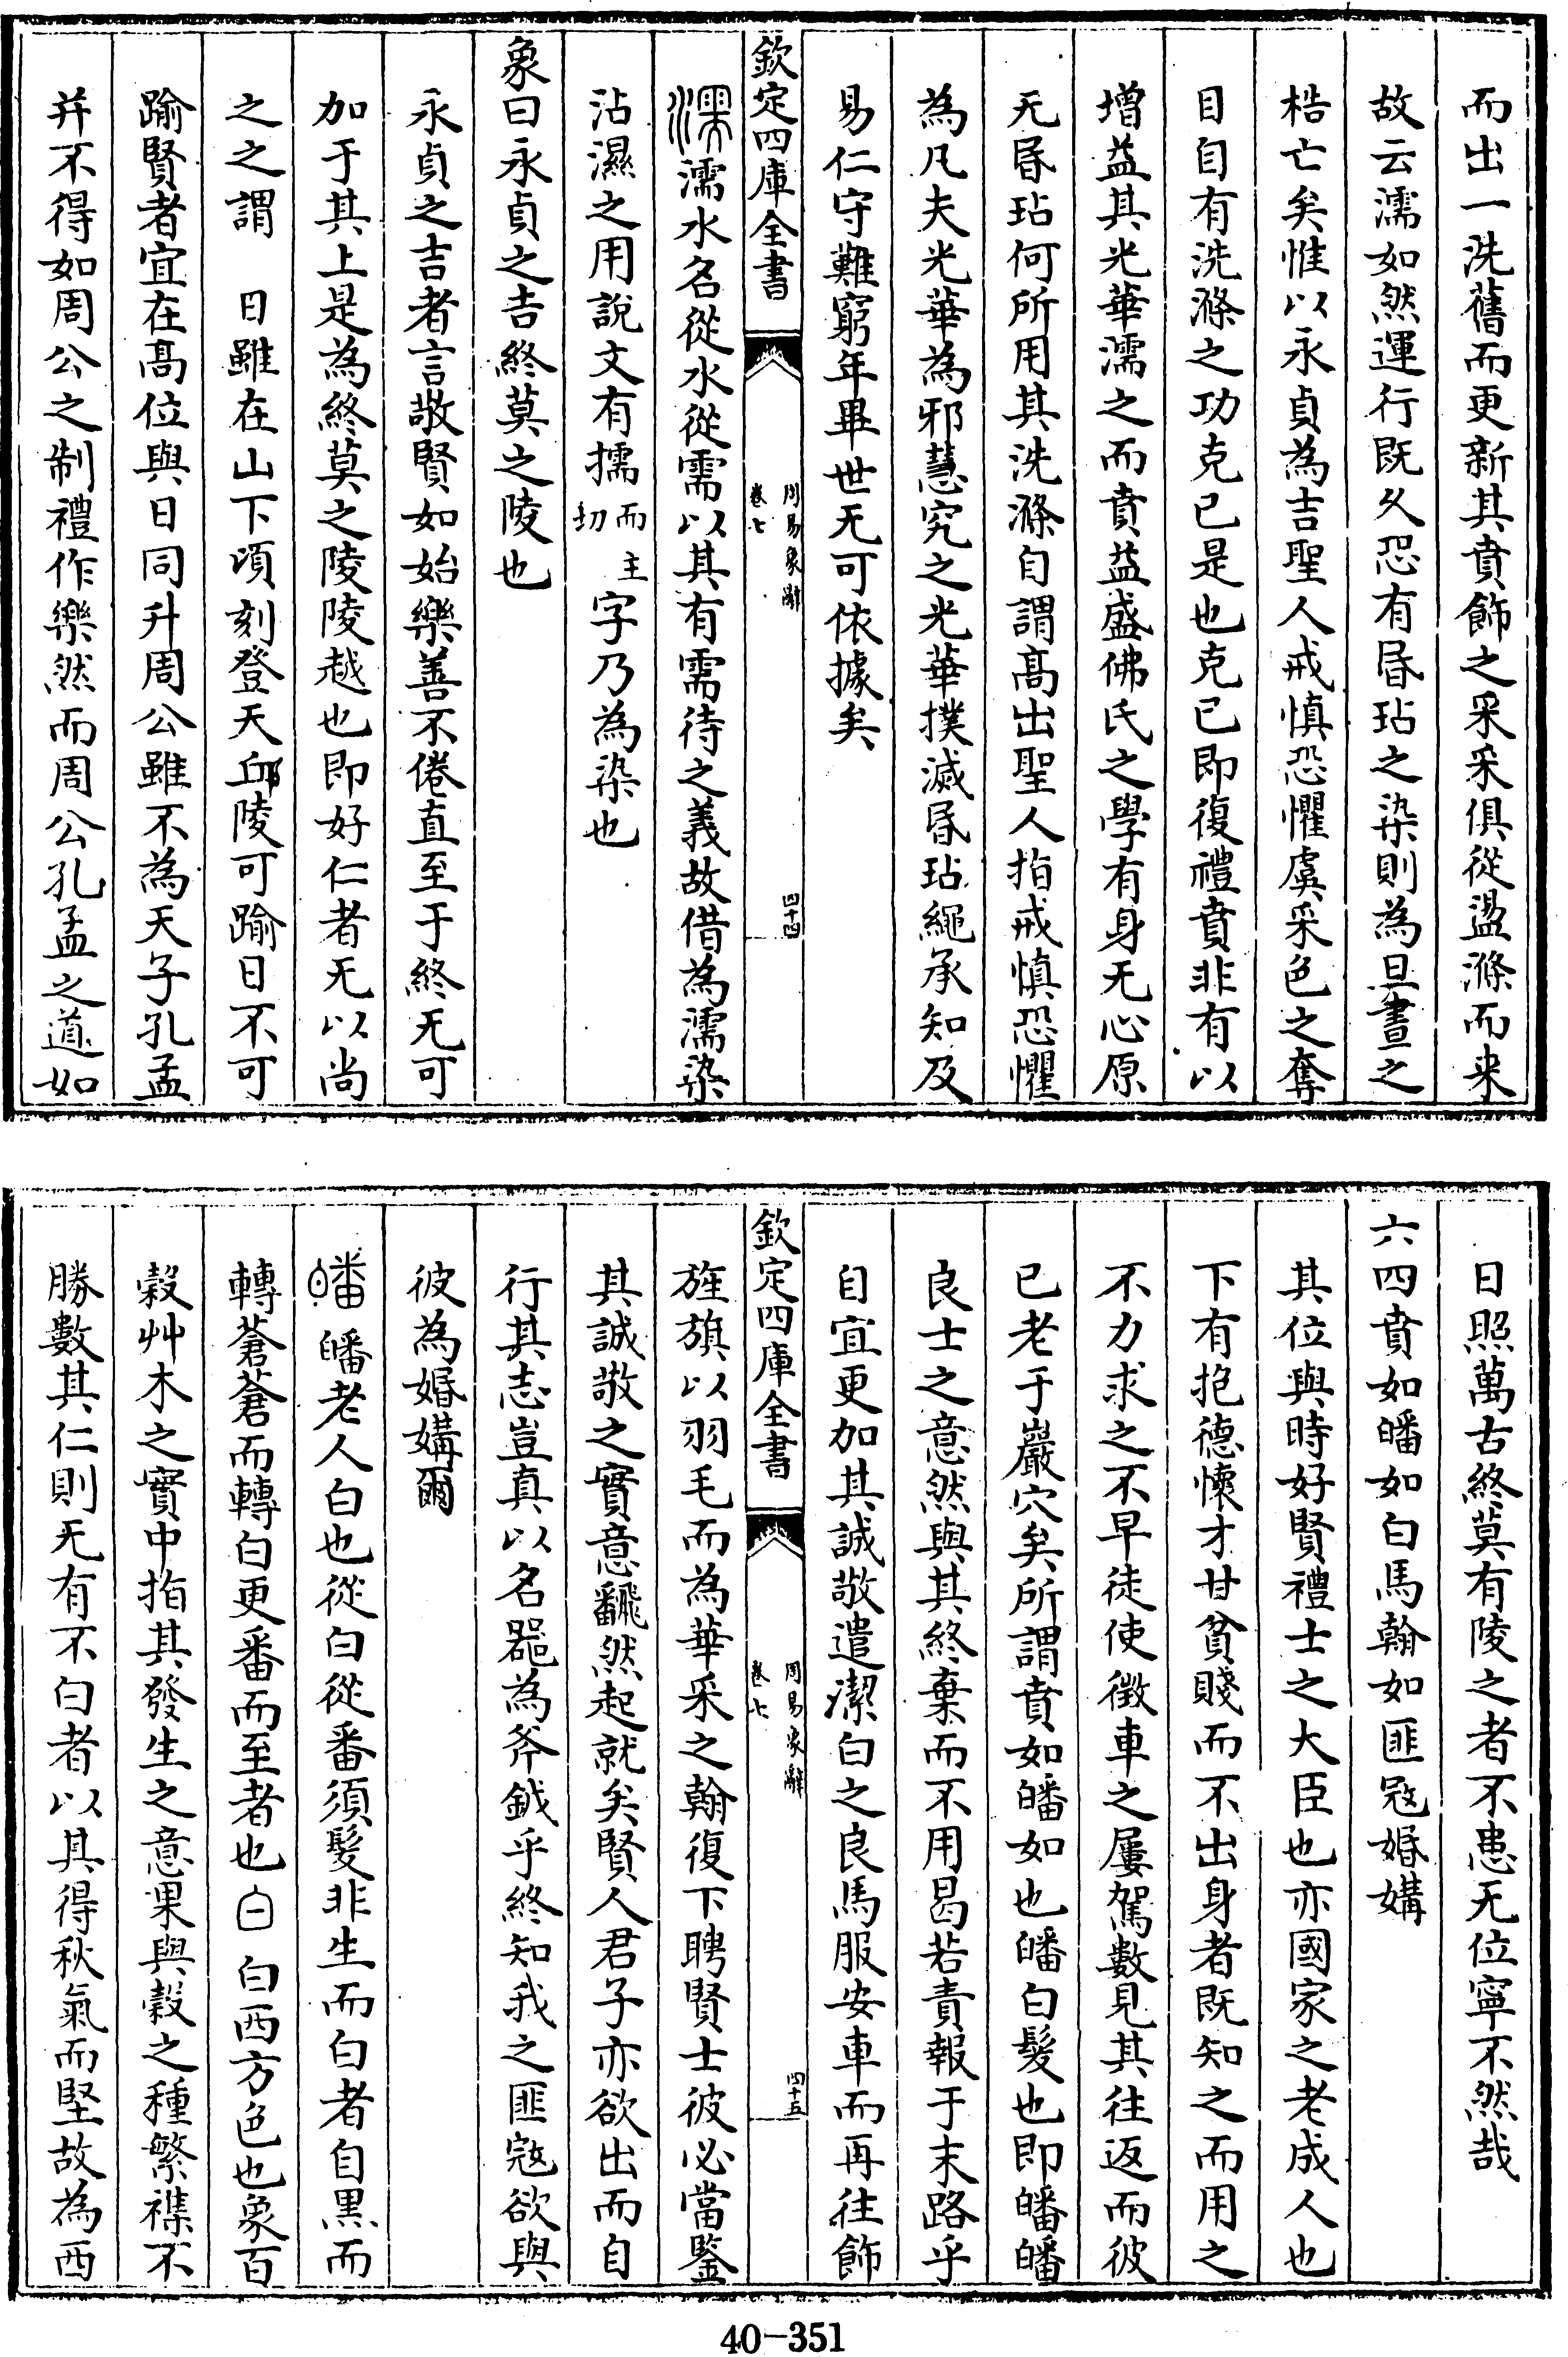 而出一洗舊而更新其賁飾之采采俱從盪滌而来
故云濡如然運行既久恐有昬玷之染則為旦晝之
梏亡矣惟以永貞為吉聖人戒慎恐懼虞采色之奪
目自有洗滌之功克已是也克已即復禮賁非有以
增益其光華濡之而賁益盛佛氏之學有身无心原
无昬玷何所用其洗滌自謂髙出聖人指戒慎恐懼
為凡夫光華為邪慧究之光華撲滅昬玷繩承知及
易仁守難窮年畢世无可依據矣
欽定四庫全書
周易象辭
卷七
四十四
濡濡水名從水從需以其有需待之義故借為濡染
沾濕之用説文有擩而主切字乃為染也
象曰永貞之吉終莫之陵也
永貞之吉者言敬賢如始樂善不倦直至于終无可
加于其上是為終莫之陵陵越也即好仁者无以尚
之之謂　日雖在山下頃刻登天邱陵可踰日不可
踰賢者宜在髙位與日同升周公雖不為天子孔孟
并不得如周公之制禮作樂然而周公孔孟之道如
日照萬古終莫有陵之者不患无位寧不然哉
六四賁如皤如白馬翰如匪冦婚媾
其位與時好賢禮士之大臣也亦國家之老成人也
下有抱德懐才甘貧賤而不出身者既知之而用之
不力求之不早徒使徵車之屢駕數見其往返而彼
已老于巖穴矣所謂賁如皤如也皤白髮也即皤皤
良士之意然與其終棄而不用曷若責報于末路乎
自宜更加其誠敬遣潔白之良馬服安車而再往飾
欽定四庫全書
周易象辭
卷七
四十五
旌旗以羽毛而為華采之翰復下聘賢士彼必當鑒
其誠敬之實意飜然起就矣賢人君子亦欲出而自
行其志豈真以名器為斧鉞乎終知我之匪冦欲與
彼為婚媾爾
皤皤老人白也從白從番須髮非生而白者自黒而
轉蒼蒼而轉白更番而至者也白白西方色也象百
穀艸木之實中指其發生之意果與穀之種繁襍不
勝數其仁則无有不白者以其得秋氣而堅故為西
40-351